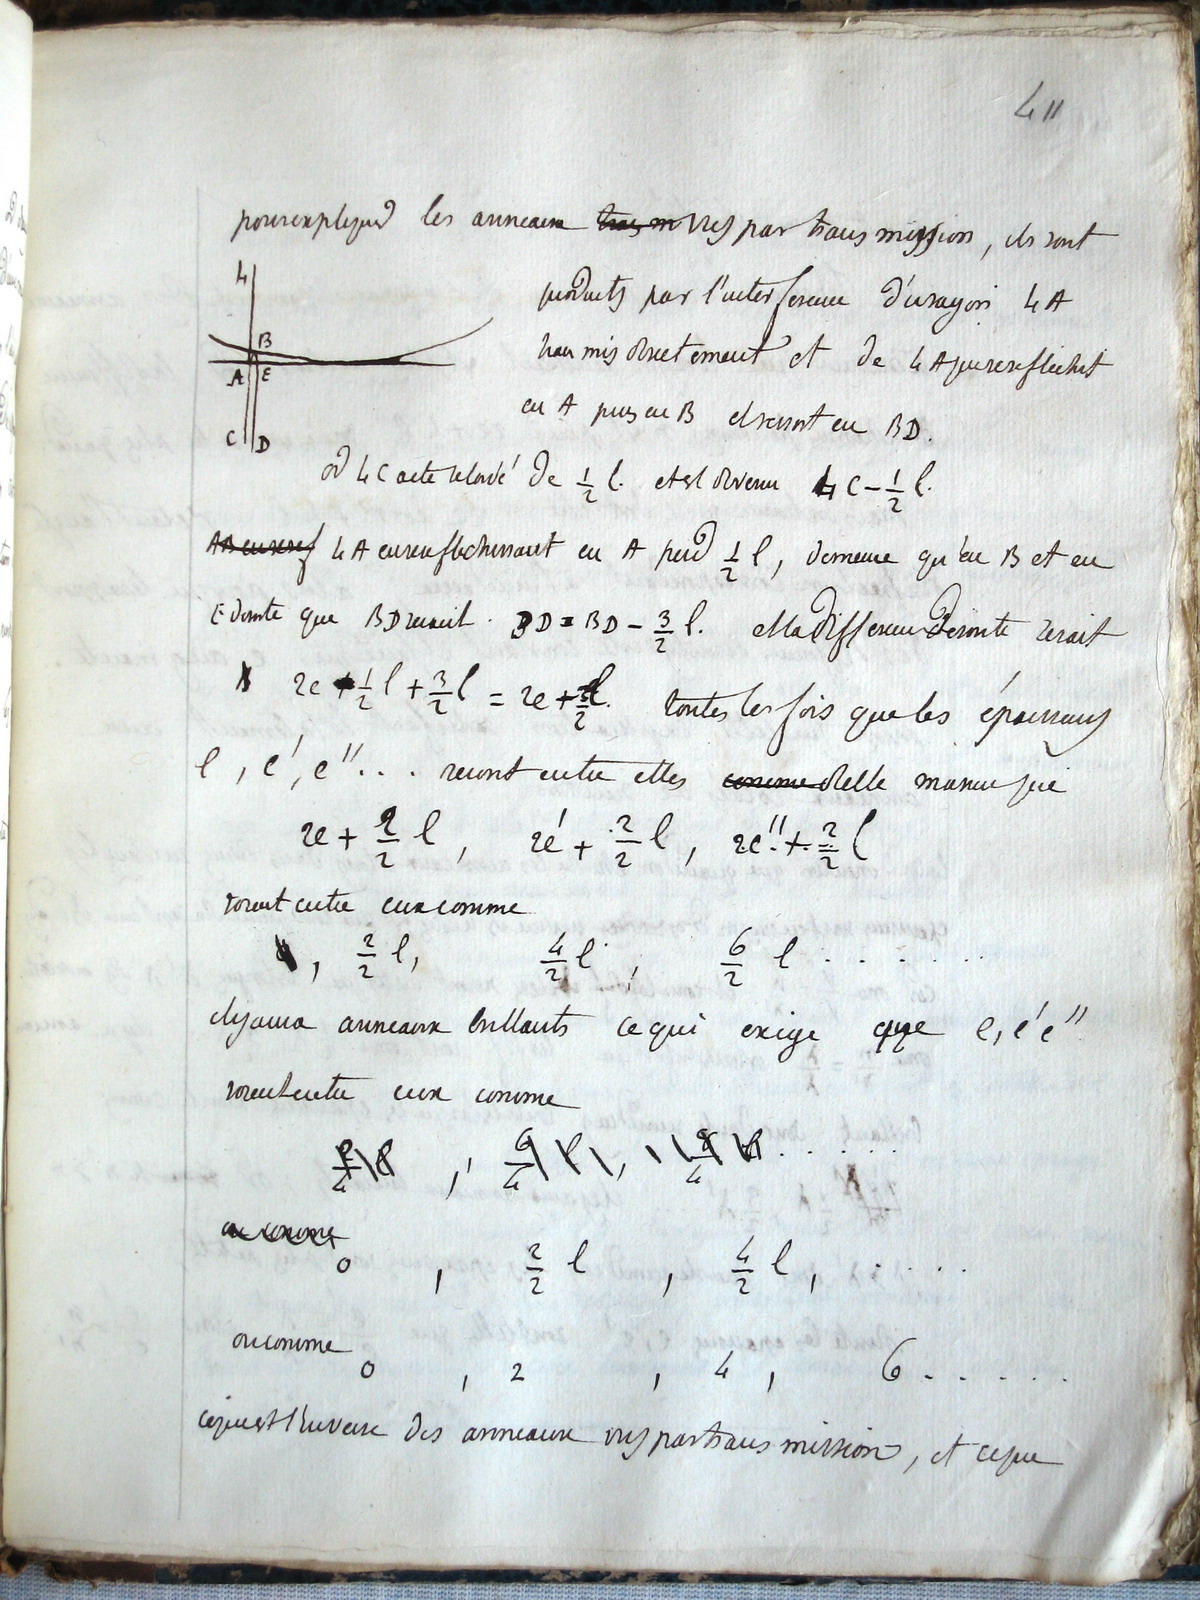 411
pour expliquer les anneaux vus par transmission, ils sont
L
B
A E
C D
produits par l'interference d'un rayon LA
transmis directement et de LA qui se reflechit
en A puis en B et ressort en BD.
or LC a ete retardé de 1/2 l. et est devenu LC - 1/2 l.
LA en se reflechissant en A perd 1/2 l, de meme qu'en B et en
E de sorte que BD BD = BD - 3/2 l. et la difference de route serait
2e + 1/2 l + 3/2 l = 2e + 2/2 l. toutes les fois que les épaisseurs
e, e', e''... seront entre elles de telle maniere que
2e + 2/2 l, 2e' + 2/2 l, 2e'' + 2/2 l
soient entre eux comme
, 2/2 l, 4/2 l, 6/2 l . . . . . . .
il y aura anneaux brillants ce qui exige que e, e' e''
soient entre eux comme
0, 2/2 l, 4/2 l, . . . .
ou comme
0, 2, 4, 6 . . . . . .
ce qui est l'inverse des anneaux vus par transmission, et ce que